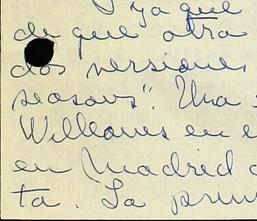 y ya que
de que otra
dos versiones
seasons". Una
Williams en e
en Madrid
ta. La prim